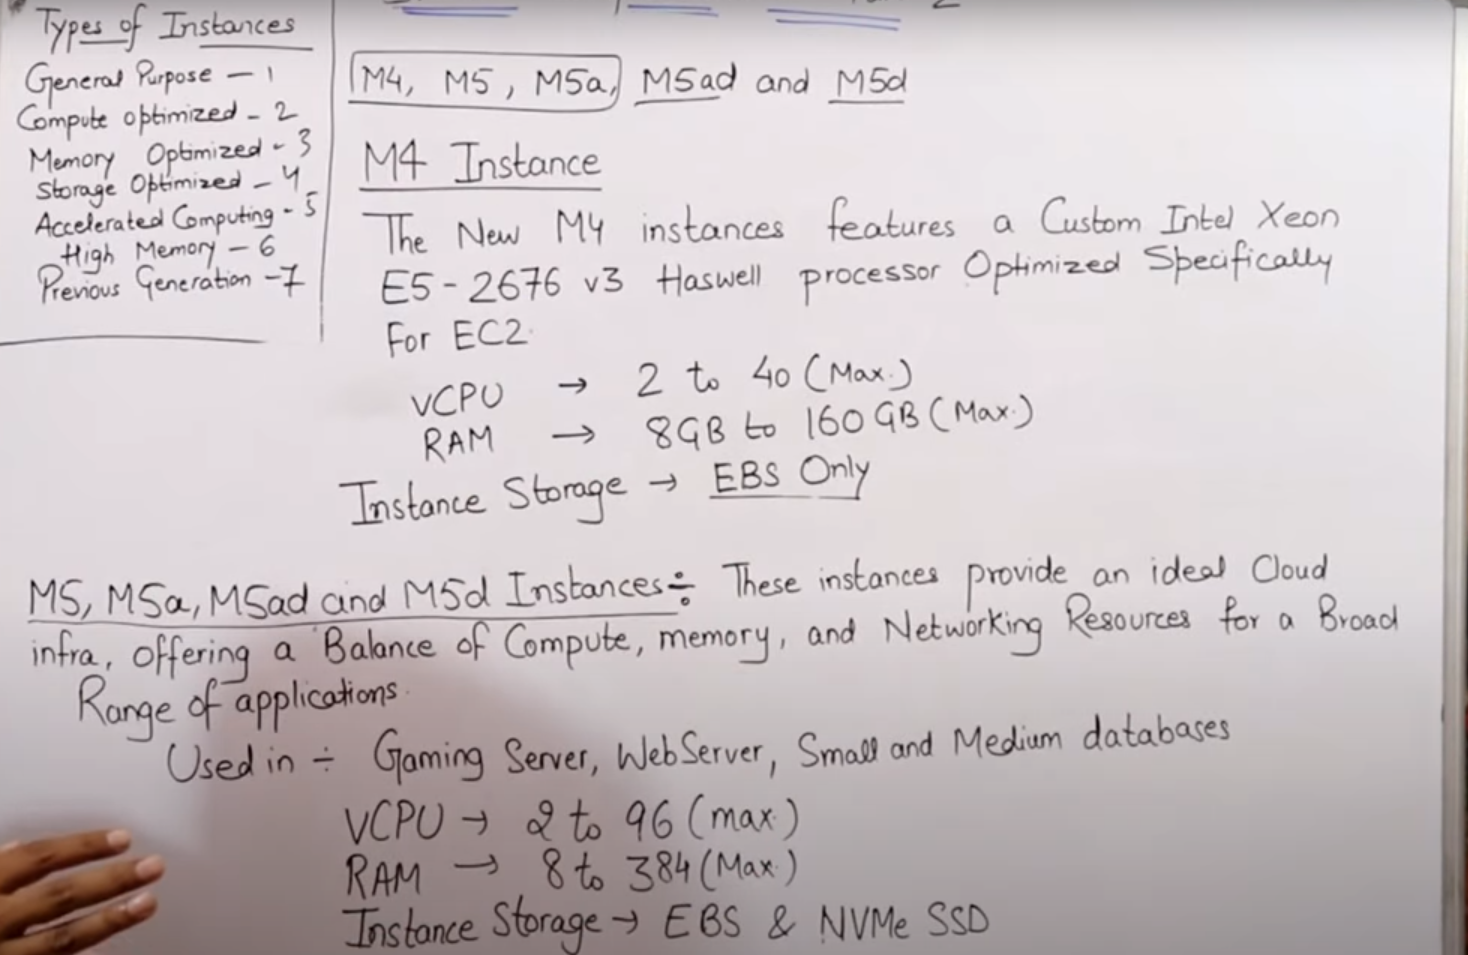 Types of Instances
General Purpose - 1
Compute optimized - 2
Memory Optimized - 3
Storage Optimized - 4
Accelerated Computing - 5
High Memory - 6
Previous Generation - 7
M4, M5, M5a, M5ad and M5d
M4 Instance
The New M4 instances features a Custom Intel Xeon
E5-2676 v3 Haswell processor Optimized Specifically
For EC2.
VCPU → 2 to 40 (Max.)
RAM → 8GB to 160 GB (Max.)
Instance Storage → EBS Only
M5, M5a, M5ad and M5d Instances ÷ These instances provide an ideal Cloud
infra, offering a Balance of Compute, memory, and Networking Resources for a Broad
Range of applications.
Used in ÷ Gaming Server, WebServer, Small and Medium databases
VCPU → 2 to 96 (max.)
RAM → 8 to 384 (Max.)
Instance Storage → EBS & NVMe SSD